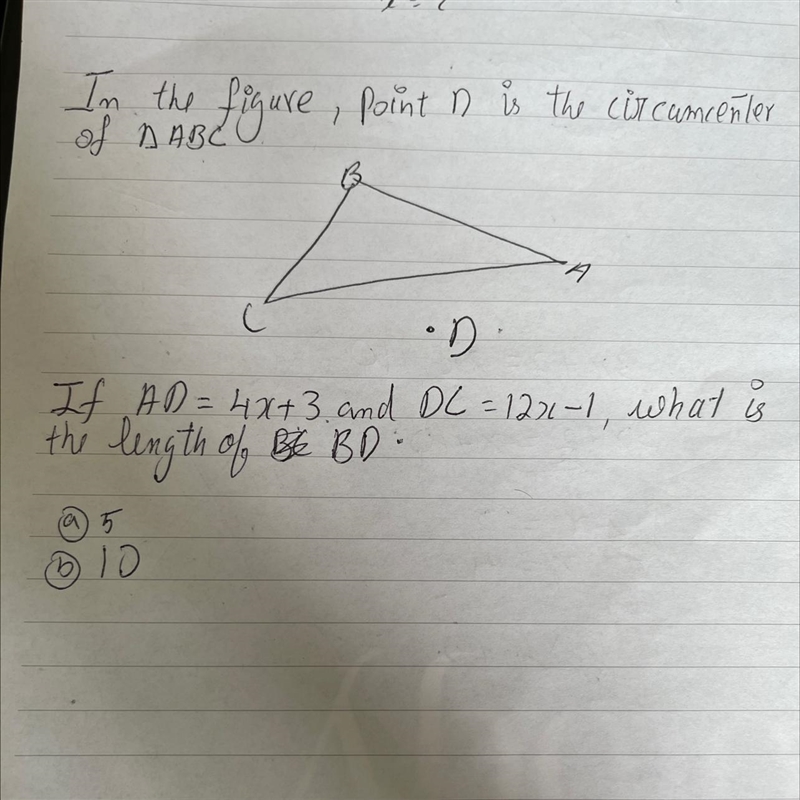 In the figure, point D is the circumcenter
of △ABC
B
A
C
D
If AD = 4x+3 and DC = 12x-1, what is
the length of BD.
(a) 5
(b) 10